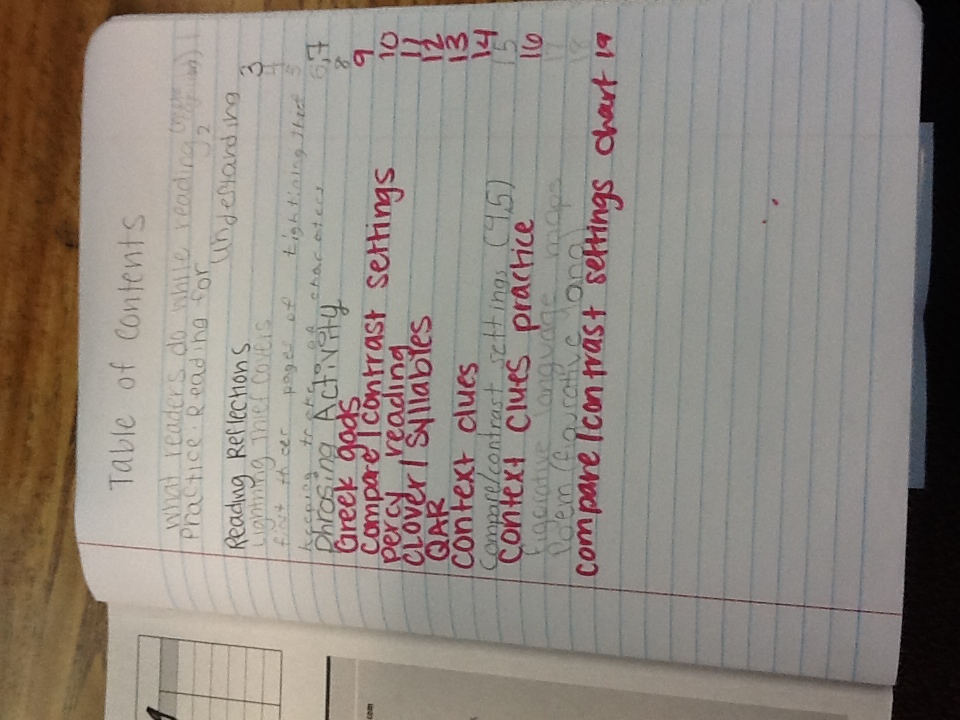 Table of Contents
What readers do while reading 1
Practice Reading for
Understanding 2
Reading Reflections 3
Lightning Thief Covers 4
first three pages of Lightining thief 5
keeping track of characters 6,7
Phrosing Activity 8
Greek gods 9
Compare/contrast settings 10
Percy reading 11
CLOVER/Syllables 12
QAR 13
Context clues 14
Compare/contrast settings (4,5) 15
Context clues practice 16
Figerative language maps 17
Poem (figurative lang) 18
compare/contrast settings chart 19
.com